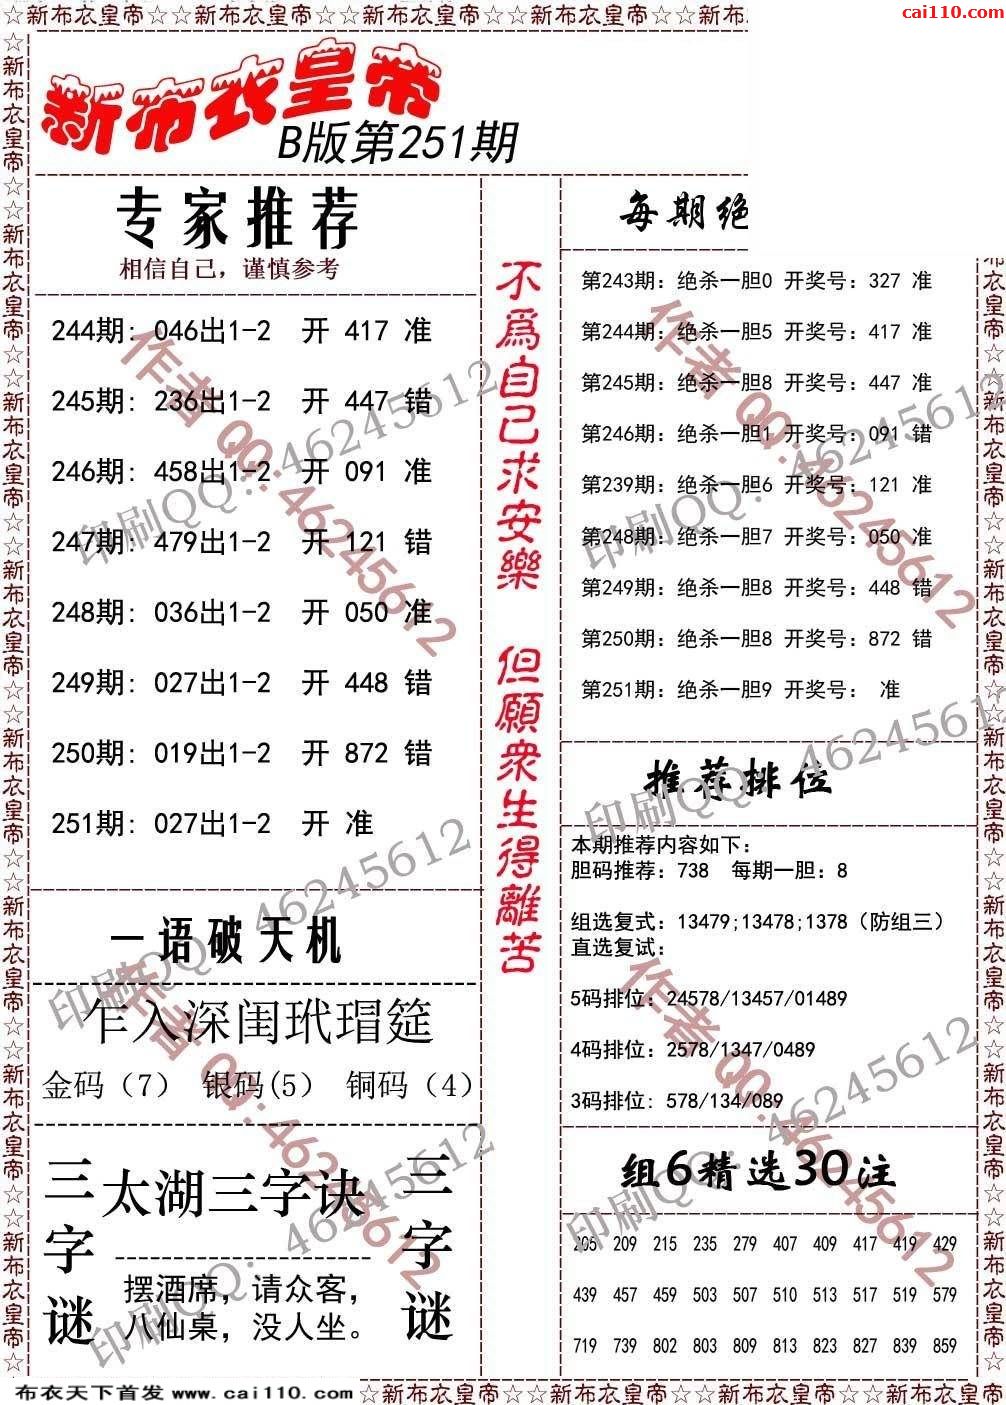 ☆新布衣皇帝☆☆新布衣皇帝☆☆新布衣皇帝☆☆新布衣皇帝☆☆新布
cai110.com
新布衣皇帝
B版第251期
专家推荐
相信自己，谨慎参考
244期: 046出1-2 开 417 准
245期: 236出1-2 开 447 错
246期: 458出1-2 开 091 准
247期: 479出1-2 开 121 错
248期: 036出1-2 开 050 准
249期: 027出1-2 开 448 错
250期: 019出1-2 开 872 错
251期: 027出1-2 开 准
一语破天机
乍入深闺玳瑁筵
金码（7） 银码(5） 铜码（4）
三字谜
太湖三字诀
摆酒席，请众客，
八仙桌，没人坐。
三字谜
不爲自己求安樂 但願衆生得離苦
每期绝
第243期: 绝杀一胆0 开奖号: 327 准
第244期: 绝杀一胆5 开奖号: 417 准
第245期: 绝杀一胆8 开奖号: 447 准
第246期: 绝杀一胆1 开奖号: 091 错
第239期: 绝杀一胆6 开奖号: 121 准
第248期: 绝杀一胆7 开奖号: 050 准
第249期: 绝杀一胆8 开奖号: 448 错
第250期: 绝杀一胆8 开奖号: 872 错
第251期: 绝杀一胆9 开奖号: 准
推荐排位
本期推荐内容如下:
胆码推荐: 738 每期一胆: 8
组选复式: 13479;13478;1378（防组三）
直选复试:
5码排位: 24578/13457/01489
4码排位: 2578/1347/0489
3码排位: 578/134/089
组6精选30注
205 209 215 235 279 407 409 417 419 429
439 457 459 503 507 510 513 517 519 579
719 739 802 803 809 813 823 827 839 859
作者 QQ:46245612
印刷QQ: 46245612
作者 QQ:46245612
印刷QQ: 46245612
印刷QQ: 46245612
印刷QQ: 46245612
作者 QQ:46245612
作者 QQ:46245612
印刷QQ: 46245612
印刷QQ: 46245612
布衣天下首发 www.cai110.com
☆新布衣皇帝☆☆新布衣皇帝☆☆新布衣皇帝☆☆新布衣皇帝☆